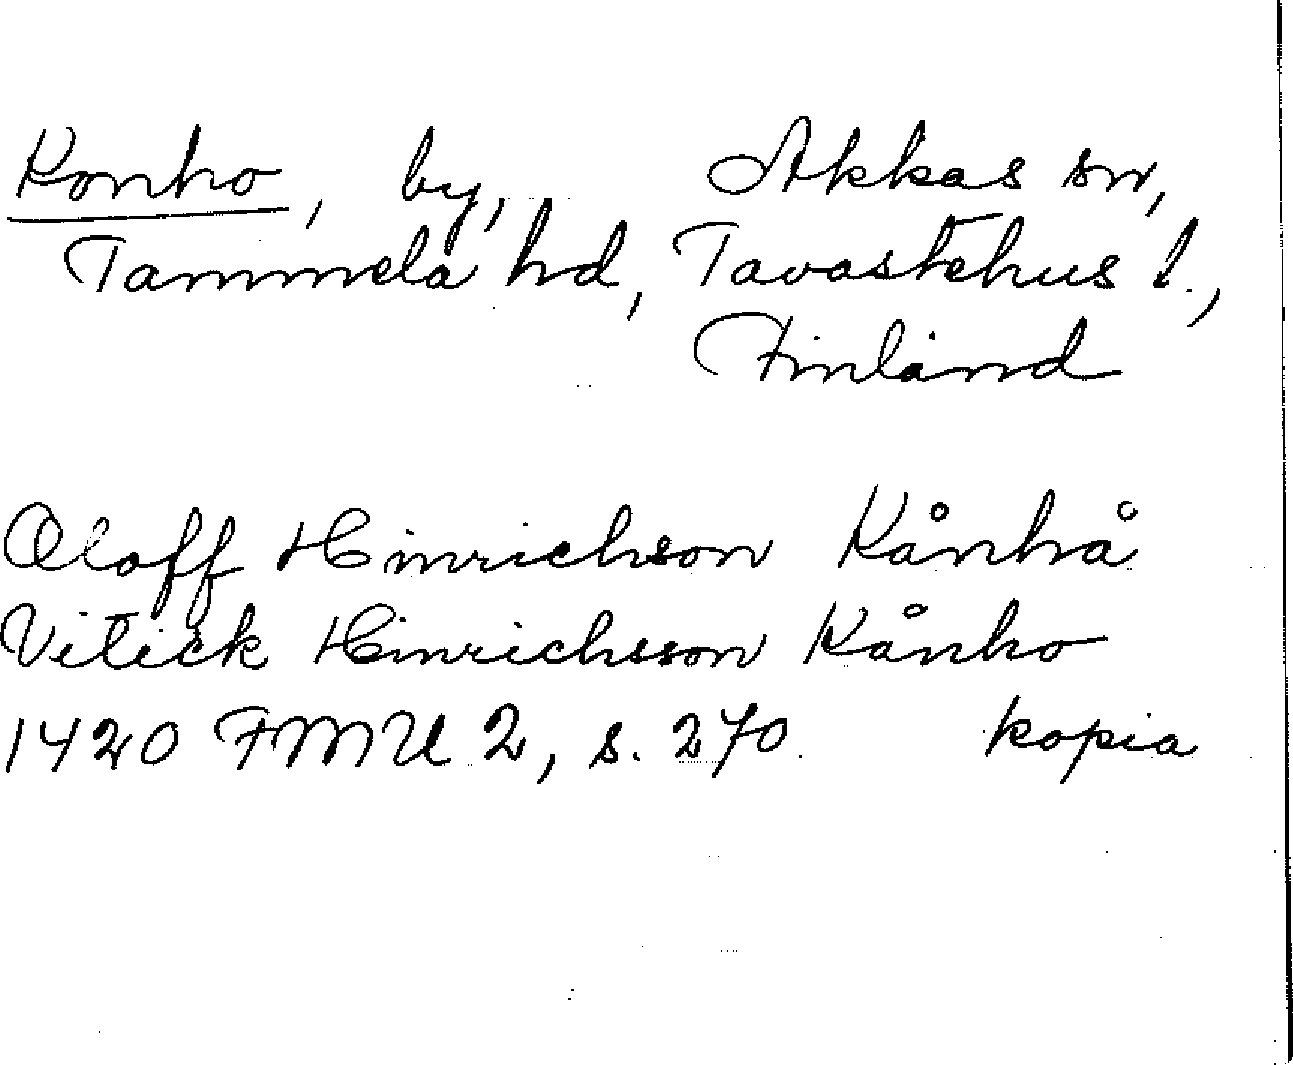 Konho, by, Akkas sn,
Tammela hd, Tavastehus l.,
Finland
Oloff Hinrichson Kånhå
Vitick Hinrichsson Kånho
1420 FMU 2, s. 270 kopia